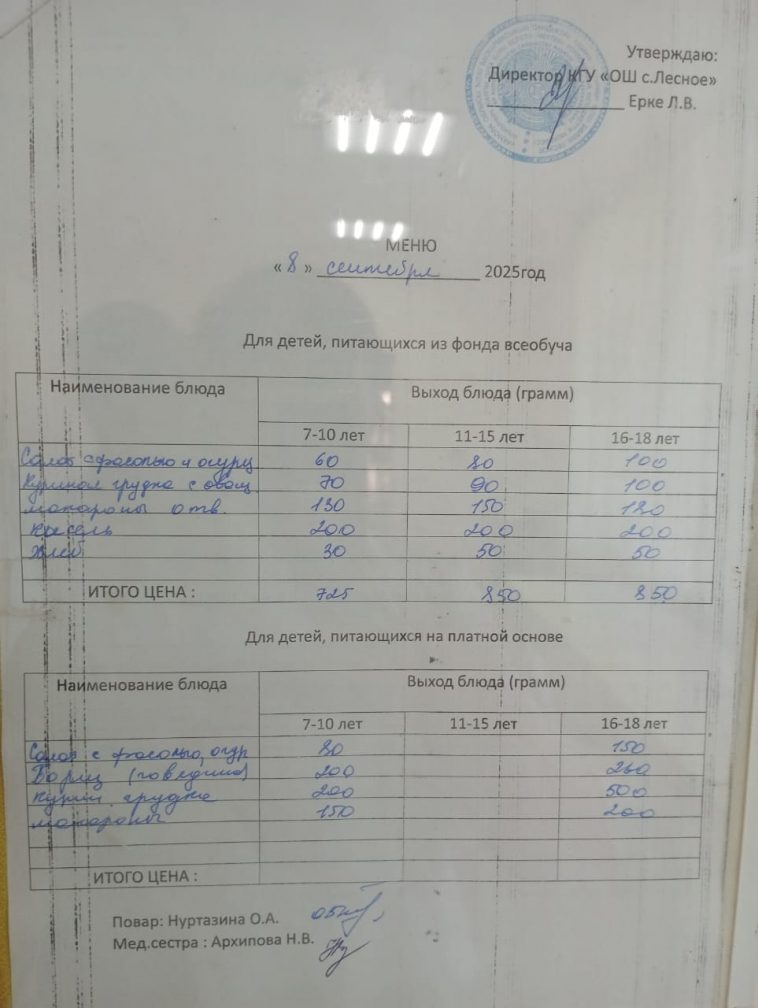 Утверждаю:
Директор КГУ «ОШ с.Лесное»
Ерке Л.В.
МЕНЮ
« 8 » сентября 2025год
Для детей, питающихся из фонда всеобуча
Наименование блюда Выход блюда (грамм)
7-10 лет 11-15 лет 16-18 лет
Салат с фасолью и огурц 60 80 100
Куриная грудка с овощ 70 90 100
макароны отв. 130 150 180
кисель 200 200 200
Хлеб 30 50 50
ИТОГО ЦЕНА : 725 850 850
Для детей, питающихся на платной основе
Наименование блюда Выход блюда (грамм)
7-10 лет 11-15 лет 16-18 лет
Салат с фасолью, огур 80 150
Борщ (говядина) 200 260
Курин. грудка 200 500
макароны 150 200
ИТОГО ЦЕНА :
Повар: Нуртазина О.А.
Мед.сестра : Архипова Н.В.